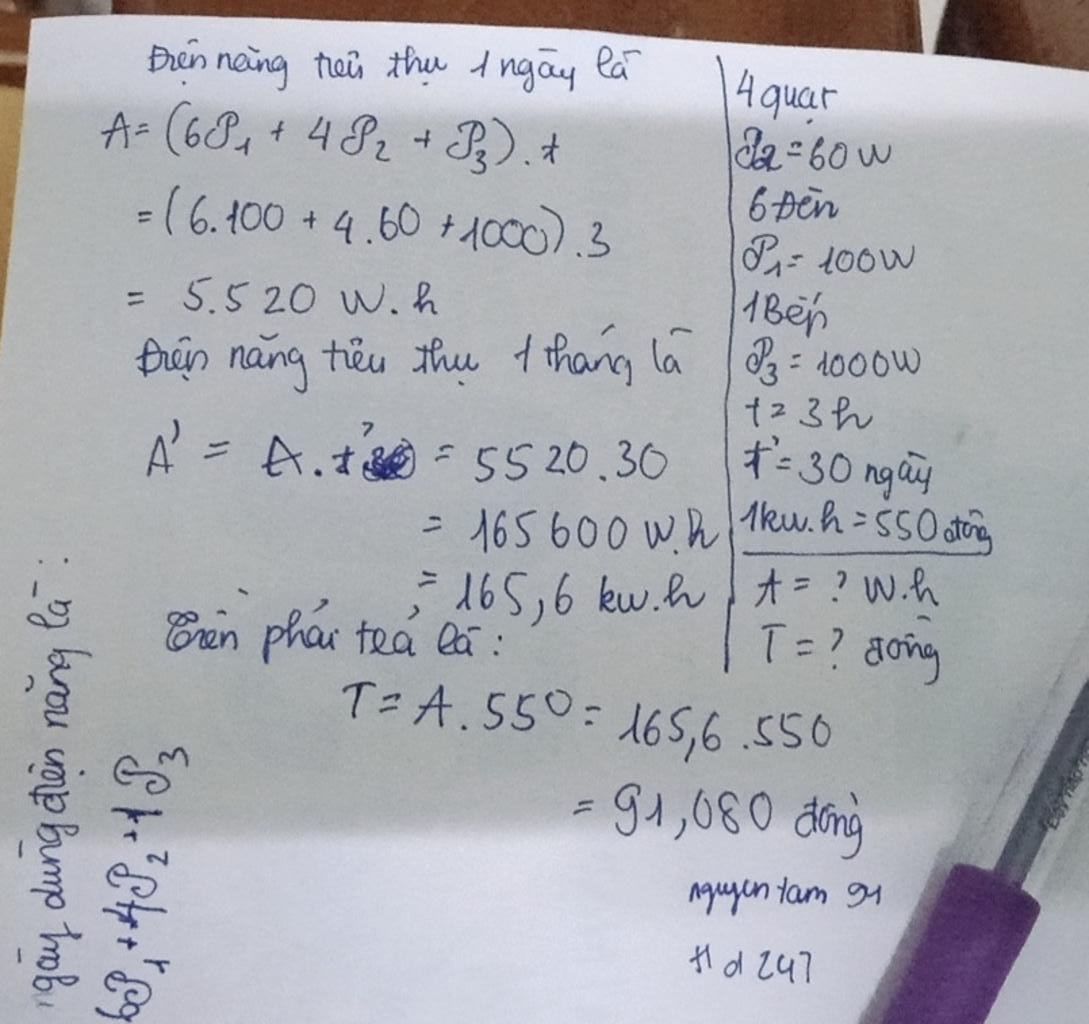 Điện năng tiêu thụ 1 ngày là
A = (6P1 + 4P2 + P3).t
= (6.100 + 4.60 + 1000).3
= 5.520 W.h
Điện năng tiêu thụ 1 tháng là
A' = A.t' = 5520.30
= 165600 W.h
= 165,6 kw.h
Tiền phải trả là:
T = A.550 = 165,6.550
= 91,080 đồng
nguyen tam 91
H d 247
4 quạt
P2 = 60W
6 Đèn
P1 = 100W
1 Bếp
P3 = 1000W
t = 3h
t' = 30 ngày
1kw.h = 550 đồng
A = ? W.h
T = ? đồng
ngày dùng điện năng là:
6P1 + 4P2 + 1P3